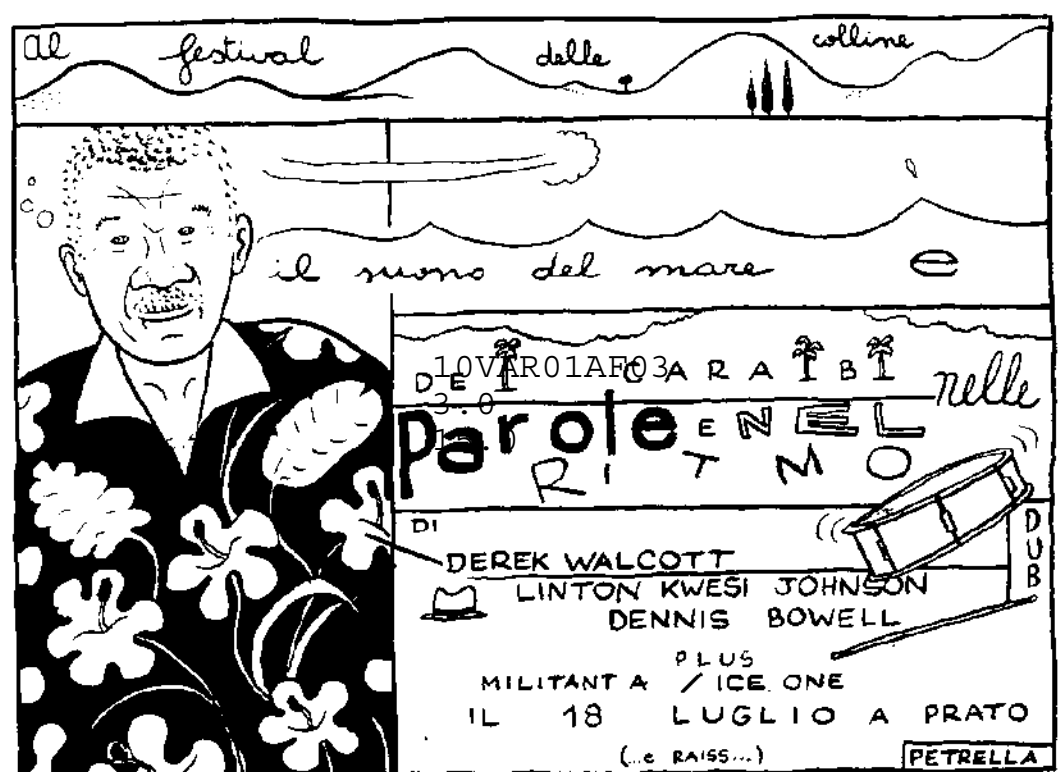 al festival delle colline
il suono del mare e
DEI CARAIBI nelle
10VAR01AF03
3.0
parole E NEL
RITMO
DUB
DI
DEREK WALCOTT
LINTON KWESI JOHNSON
DENNIS BOWELL
PLUS
MILITANT A / ICE ONE
IL 18 LUGLIO A PRATO
(...e RAISS...)
PETRELLA